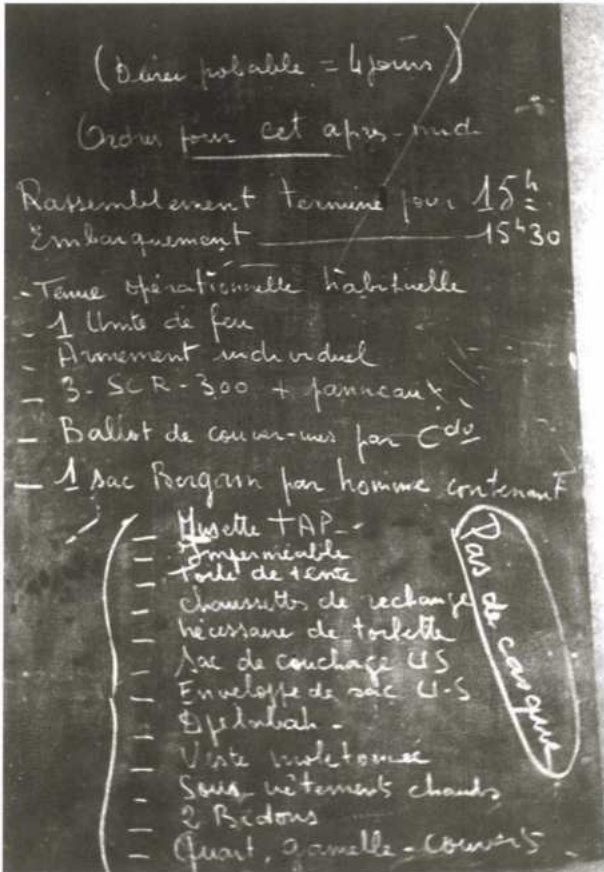 (Durée probable = 4 jours)
Ordres pour cet après-midi
Rassemblement terminé pour 15h
Embarquement 15h30
- Tenue opérationnelle habituelle
- 1 Unité de feu
- Armement individuel
- 3 - SCR-300 + panneaux
- Ballot de couver-ures par Cdo
- 1 sac Bergam par homme contenant
- Musette TAP -
- Imperméable
- Toile de tente
- chaussettes de rechange
- nécessaire de toilette
- Sac de couchage US
- Enveloppe de sac U-S
- Djellabah -
- Veste moletonnée
- Sous vêtements chauds
- 2 Bidons
- Quart, gamelle - couverts
Pas de casque